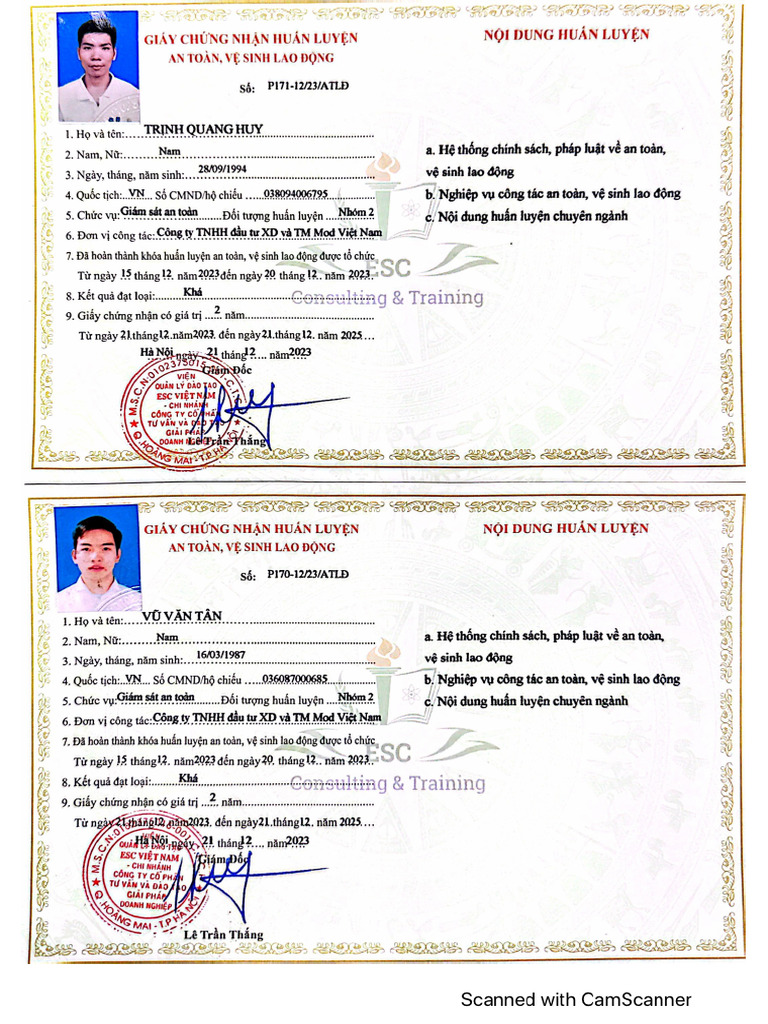 GIẤY CHỨNG NHẬN HUẤN LUYỆN
AN TOÀN, VỆ SINH LAO ĐỘNG
Số: P171-12/23/ATLĐ
1. Họ và tên: TRỊNH QUANG HUY
2. Nam, Nữ: Nam
3. Ngày, tháng, năm sinh: 28/09/1994
4. Quốc tịch: VN Số CMND/hộ chiếu 038094006795
5. Chức vụ: Giám sát an toàn Đối tượng huấn luyện Nhóm 2
6. Đơn vị công tác: Công ty TNHH đầu tư XD và TM Mod Việt Nam
7. Đã hoàn thành khóa huấn luyện an toàn, vệ sinh lao động được tổ chức
Từ ngày 15 tháng 12. năm 2023 đến ngày 20 tháng 12.. năm 2023.
8. Kết quả đạt loại: Khá
9. Giấy chứng nhận có giá trị 2 năm
Từ ngày 21.tháng12..năm2023. đến ngày21.tháng12. năm 2025....
Hà Nội ngày 21 tháng12.... năm2023
Giám Đốc
M.S.C.N:0102375015
VIỆN
QUẢN LÝ ĐÀO TẠO
ESC VIỆT NAM
- CHI NHÁNH
CÔNG TY CỔ PHẦN
TƯ VẤN VÀ ĐÀO TẠO
GIẢI PHÁP
DOANH NGHIỆP
Q. HOÀNG MAI - T.P HÀ NỘI
Lê Trần Thắng
NỘI DUNG HUẤN LUYỆN
a. Hệ thống chính sách, pháp luật về an toàn,
vệ sinh lao động
b. Nghiệp vụ công tác an toàn, vệ sinh lao động
c. Nội dung huấn luyện chuyên ngành
ESC
Consulting & Training
GIẤY CHỨNG NHẬN HUẤN LUYỆN
AN TOÀN, VỆ SINH LAO ĐỘNG
Số: P170-12/23/ATLĐ
1. Họ và tên: VŨ VĂN TÂN
2. Nam, Nữ: Nam
3. Ngày, tháng, năm sinh: 16/03/1987
4. Quốc tịch: VN Số CMND/hộ chiếu 036087000685
5. Chức vụ: Giám sát an toàn Đối tượng huấn luyện Nhóm 2
6. Đơn vị công tác: Công ty TNHH đầu tư XD và TM Mod Việt Nam
7. Đã hoàn thành khóa huấn luyện an toàn, vệ sinh lao động được tổ chức
Từ ngày 15 tháng 12. năm2023 đến ngày 20. tháng 12.. năm 2023.
8. Kết quả đạt loại: Khá
9. Giấy chứng nhận có giá trị 2 năm
Từ ngày 21.tháng12.năm2023. đến ngày21.tháng12.. năm 2025....
Hà Nội ngày 21 tháng12.... năm2023
Giám Đốc
QUẢN LÝ ĐÀO TẠO
ESC VIỆT NAM
- CHI NHÁNH
CÔNG TY CỔ PHẦN
TƯ VẤN VÀ ĐÀO TẠO
GIẢI PHÁP
DOANH NGHIỆP
Q. HOÀNG MAI - T.P HÀ NỘI
Lê Trần Thắng
NỘI DUNG HUẤN LUYỆN
a. Hệ thống chính sách, pháp luật về an toàn,
vệ sinh lao động
b. Nghiệp vụ công tác an toàn, vệ sinh lao động
c. Nội dung huấn luyện chuyên ngành
ESC
Consulting & Training
Scanned with CamScanner